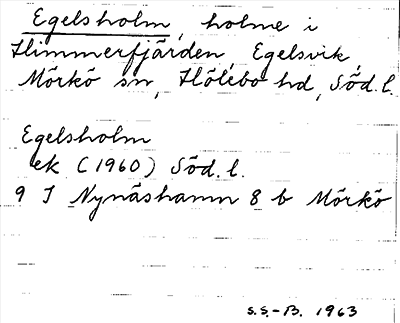 Egelsholm, holme i
Himmerfjärden, Egelsvik,
Mörkö sn, Hölebo hd, Söd. l.
Egelsholm
ek (1960) Söd. l.
9 I Nynäshamn 8 b Mörkö
S.S.-B. 1963